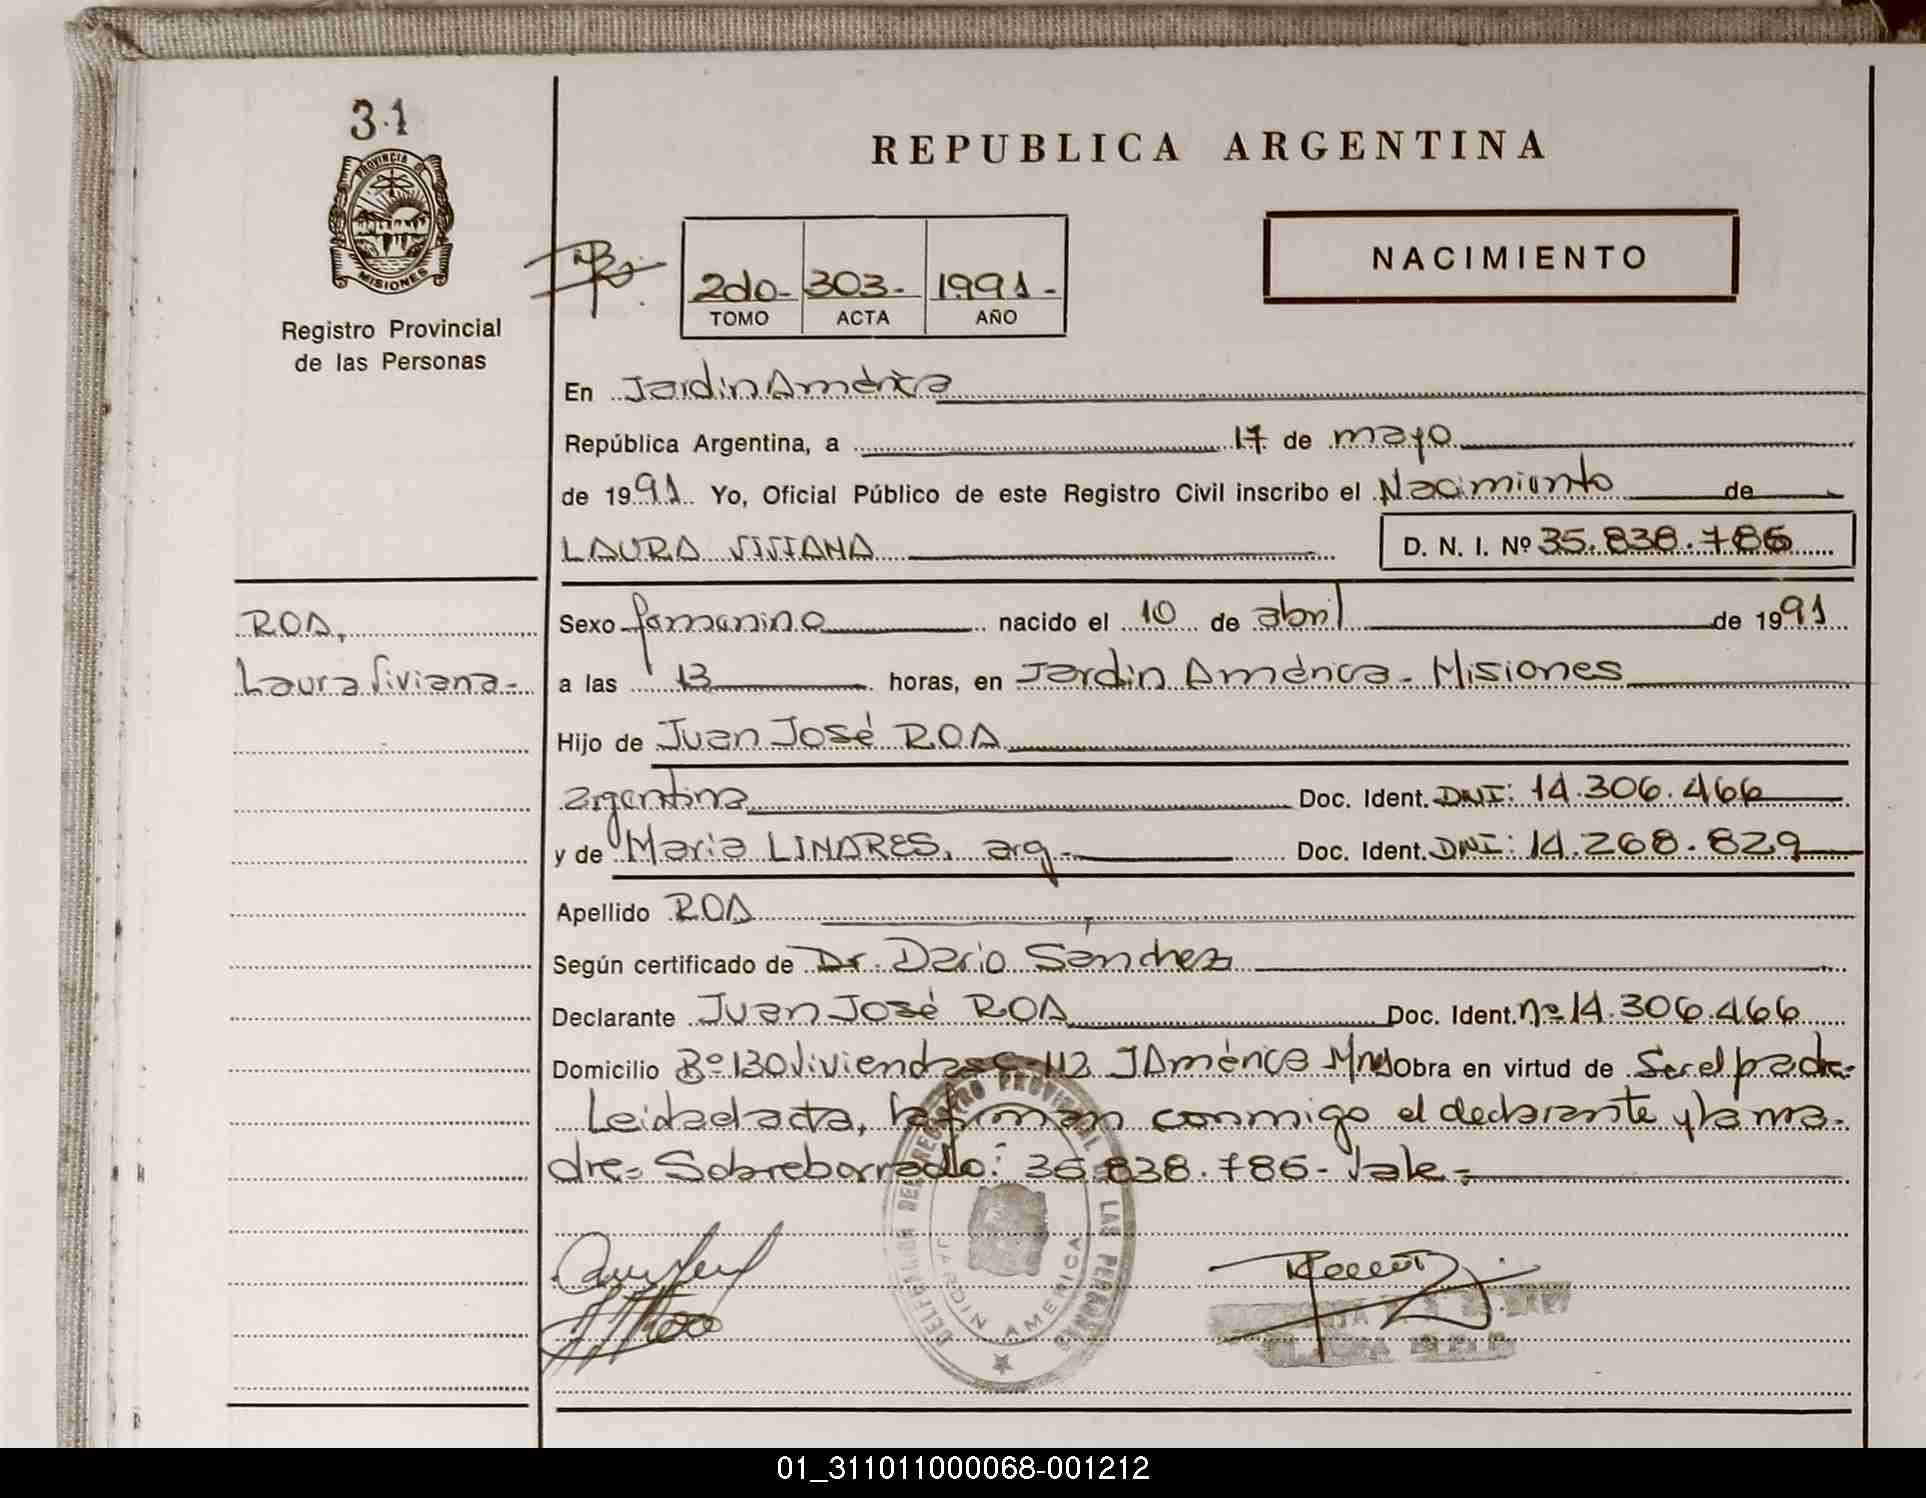 31
PROVINCIA DE
MISIONES
Registro Provincial
de las Personas
REPUBLICA ARGENTINA
2do- 303- 1991-
TOMO ACTA AÑO
NACIMIENTO
En Jardin América
República Argentina, a 17 de mayo
de 1991 Yo, Oficial Público de este Registro Civil inscribo el Nacimiento de
LAURA VIVIANA D. N. I. Nº 35.838.786
ROA,
Laura Viviana-
Sexo femenino nacido el 10 de abril de 1991
a las 13 horas, en Jardin América - Misiones
Hijo de Juan José ROA
argentina Doc. Ident. DNI: 14.306.466
y de Maria LINARES, arg- Doc. Ident. DNI: 14.268.829
Apellido ROA
Según certificado de Dr. Dario Sánchez
Declarante Juan José ROA Doc. Ident. nº 14.306.466
Domicilio Bº 130 Viviendas C-112 J América Mns Obra en virtud de Ser el padre-
Leida el acta, la firman conmigo el declarante y la ma-
dre- Sobreborrado: 35.838.786- Vale-
DELEGACION DEL REGISTRO PROVINCIAL DE LAS PERSONAS
JARDIN AMERICA
01_311011000068-001212